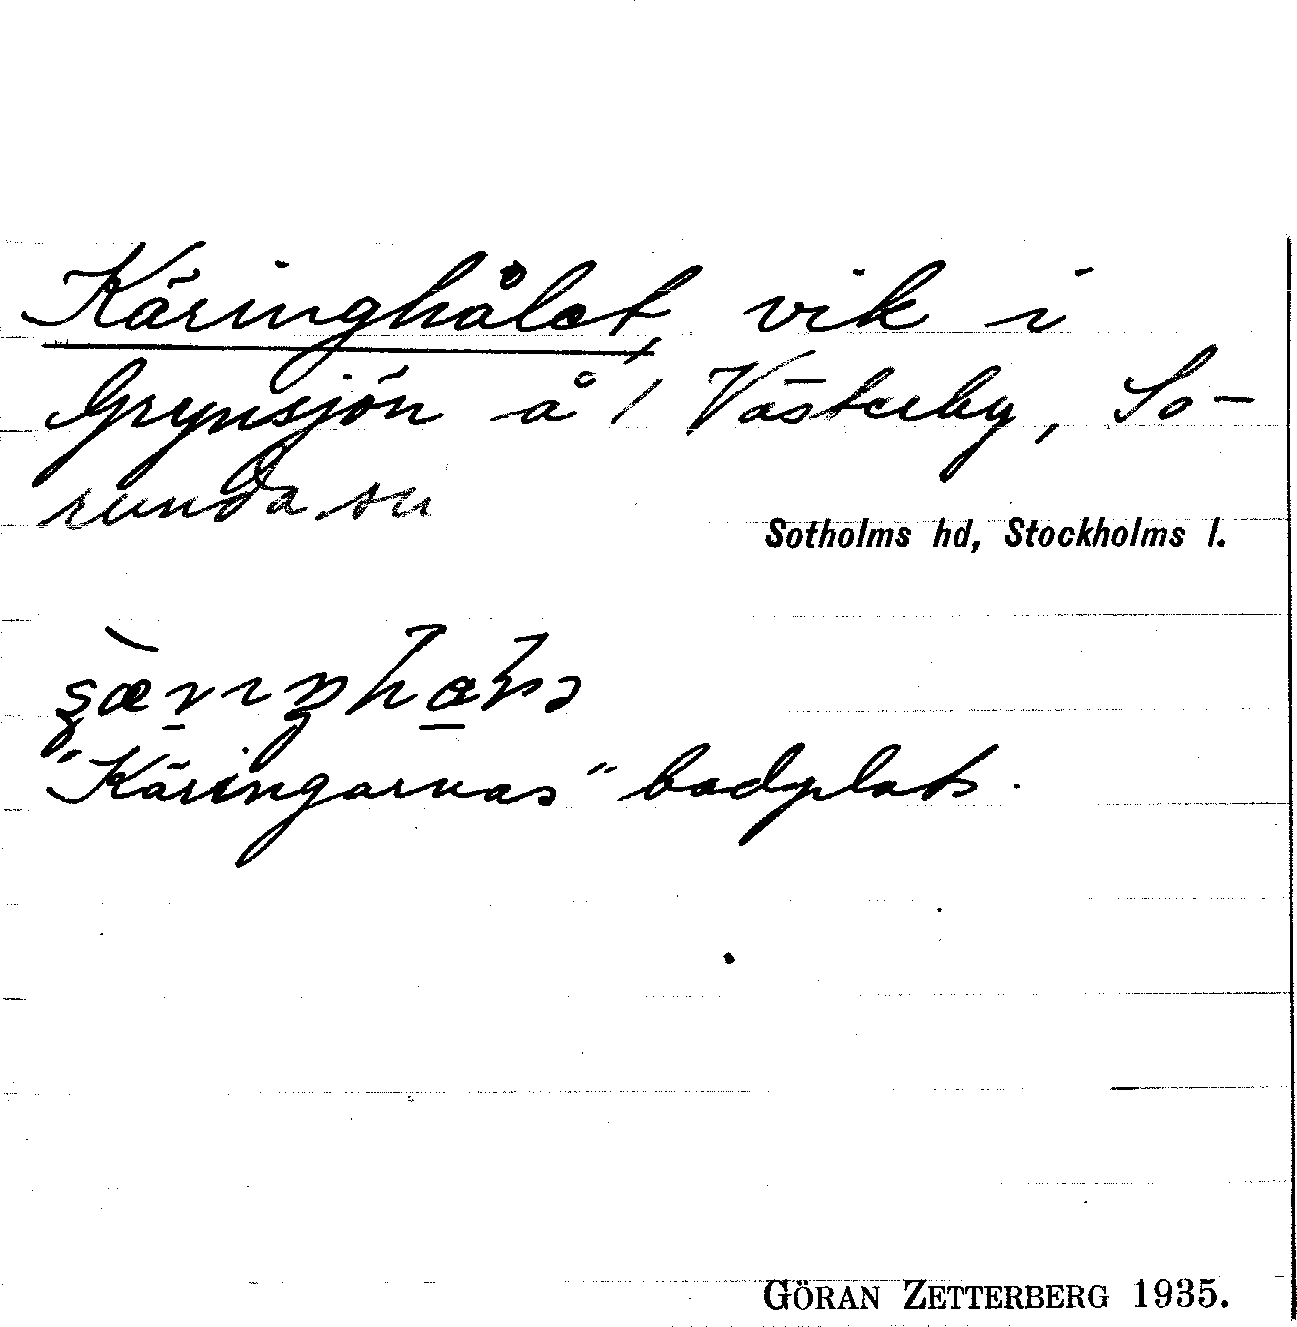 Käringhålet, vik i
Grynsjön å / Västerby, So-
runda sn
Sotholms hd, Stockholms l.
"Käringarnas" badplats.
GÖRAN ZETTERBERG 1935.